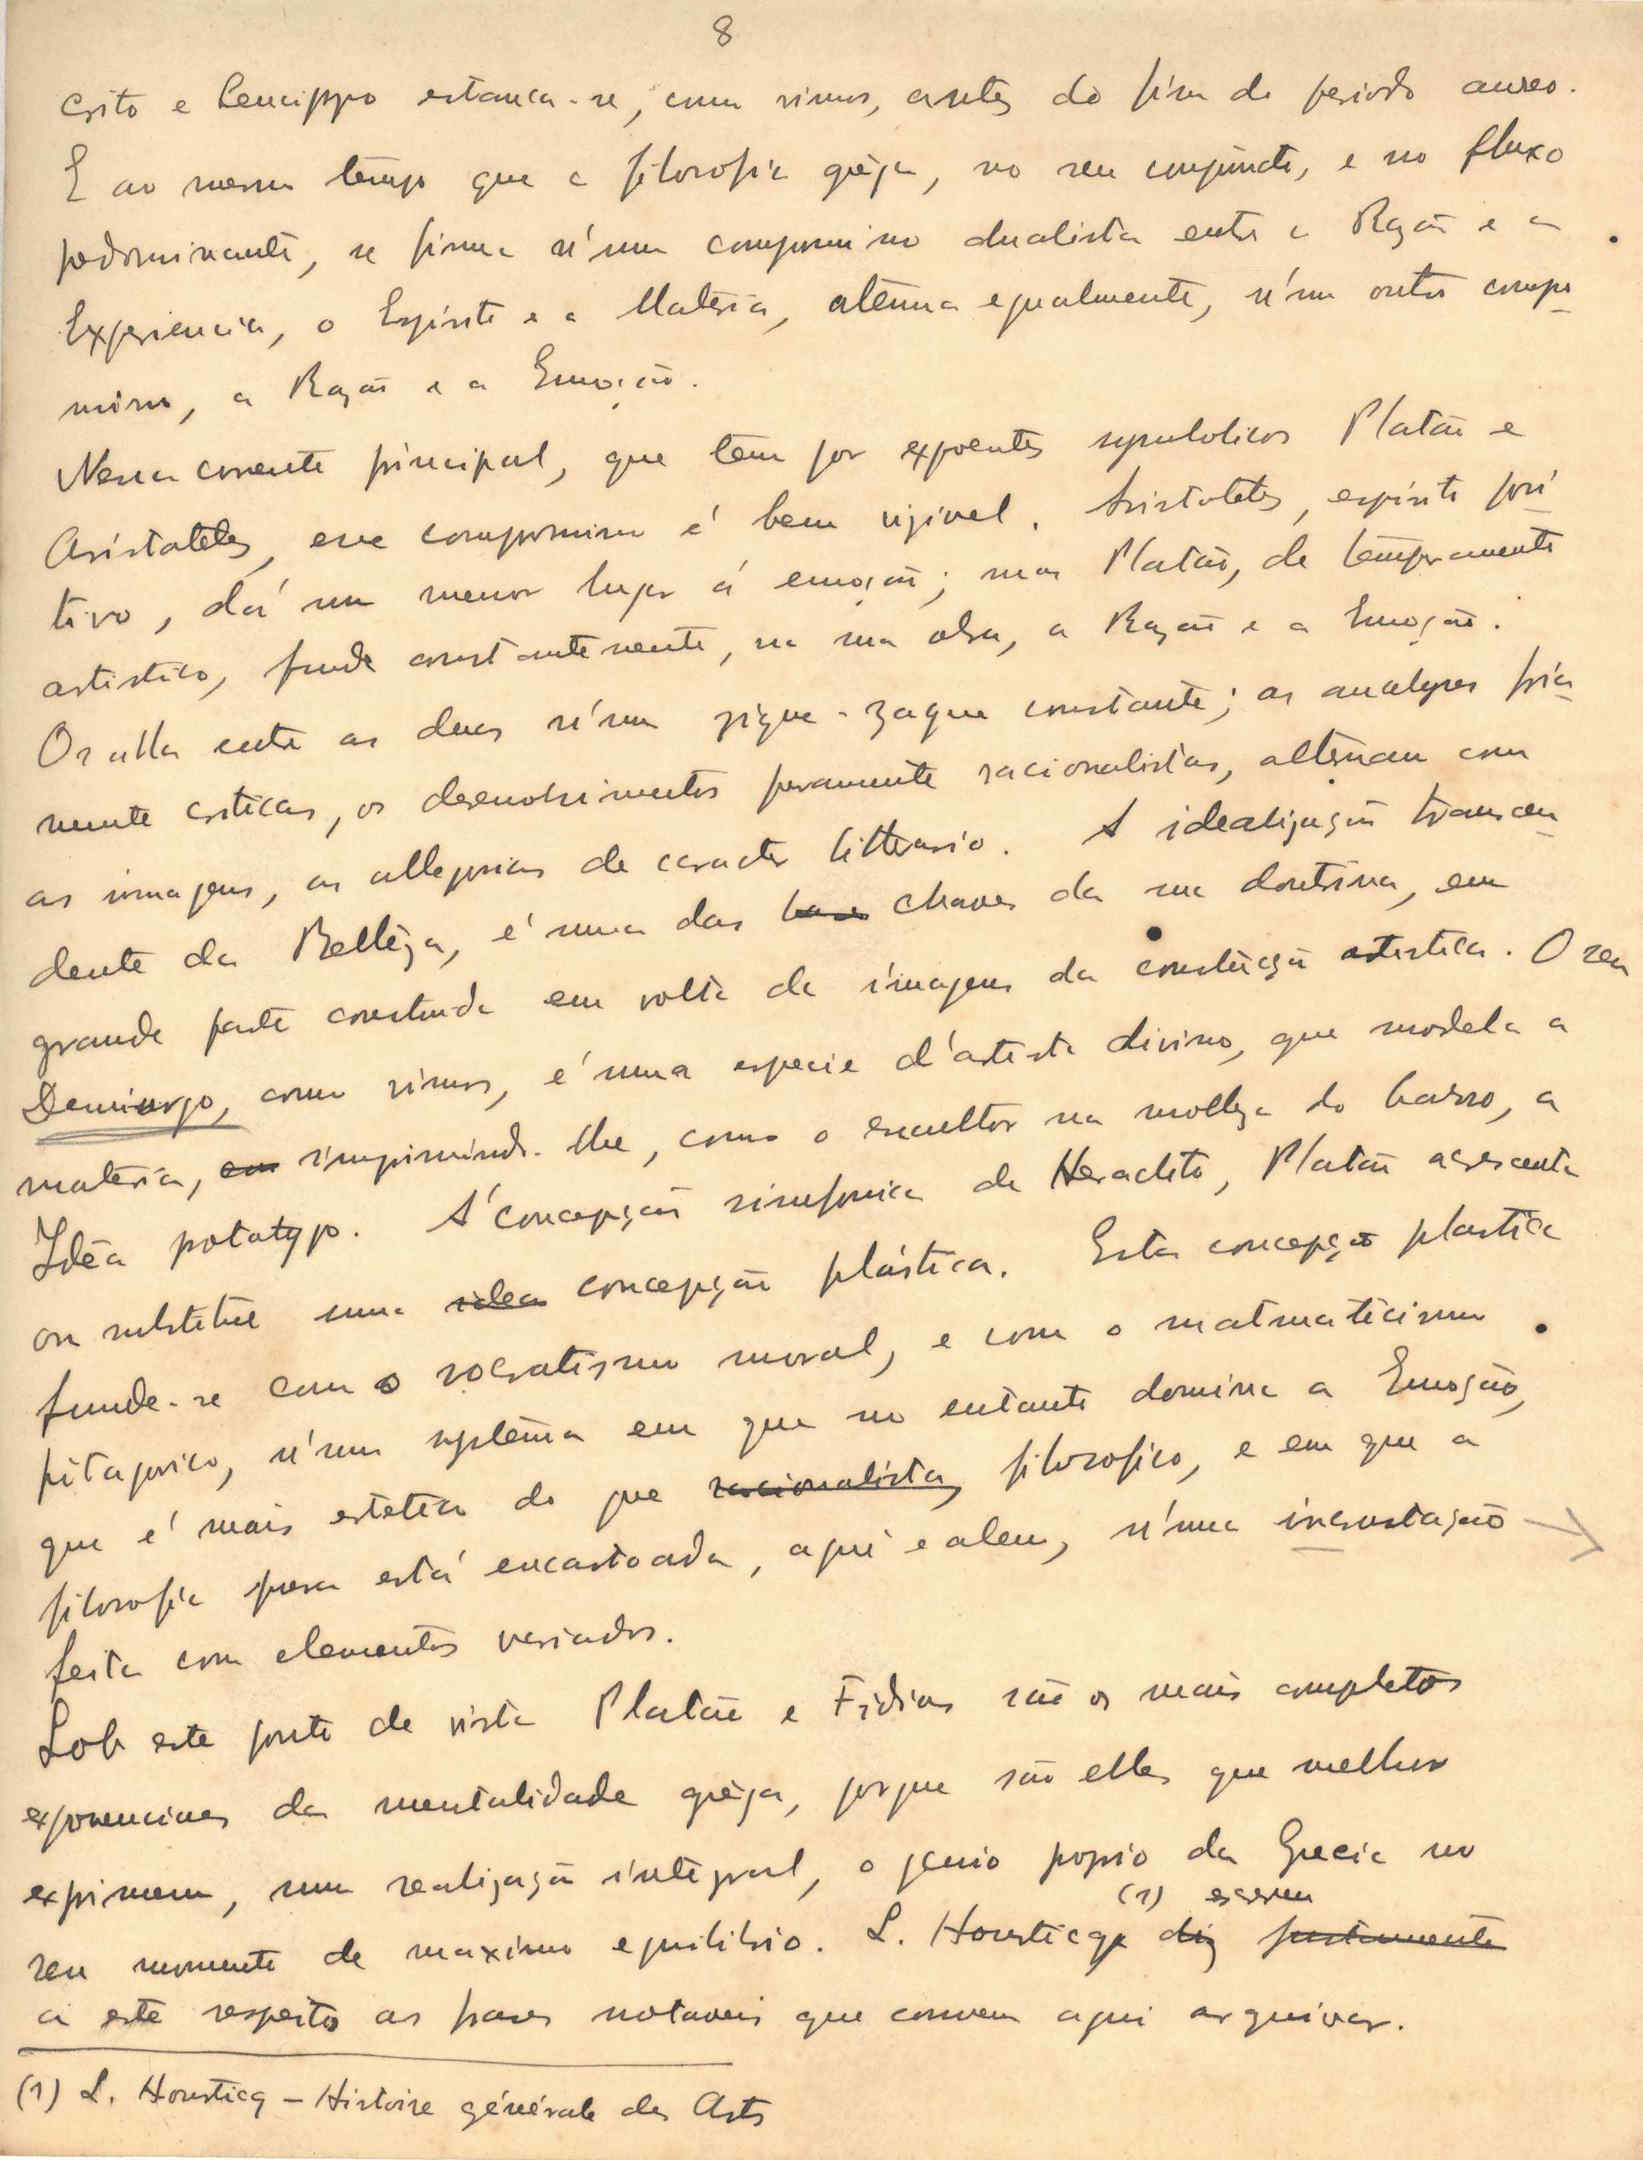 8
crito e Leucippo estanca-se, como vimos, antes do fim do periodo aureo.
E ao mesmo tempo que a filosofia gréga, no seu conjuncto, e no fluxo
pedominante, se firma n'um compromisso dualista entre a Razão e a
Experiencia, o Espirito e a Materia, aténua egualmente, n'um outro compo-
misso, a Razão e a Emoção.
Nessa corrente principal, que tem por expoentes symbolicos Platão e
Aristoteles, esse compromisso é bem visivel. Aristoteles, espirito posi-
tivo, dá um menor lugar á emoção; mas Platão, de temperamento
artistico, funde constantemente, na sua obra, a Razão e a Emoção.
Oscilla entre as duas n'um zigue-zague constante; as analyses fria-
mente criticas, os desenvolvimentos puramente racionalistas, alternam com
as imagens, as allegorias de caracter litterario. A idealização transcen-
dente da Belleza, é uma das base chaves da sua doutrina, em
grande parte construida em volta de imagens da construcção artistica. O seu
Demiurgo, como vimos, é uma especie d'artista divino, que modela a
materia, em imprimindo-lhe, como o escultor na molleza do barro, a
Idéa prototypo. Á concepção sinfonica de Heraclito, Platão acrescenta
ou substitue uma idea concepção plástica. Esta concepção plastica
funde-se com o socratismo moral, e com o matematicismo
pitagorico, n'um systema em que no entanto domina a Emoção,
que é mais estetico do que racionalista, filosofico, e em que a
filosofia pura está encastoada, aqui e alem, n'uma incrustação
feita com elementos variados.
Sob este ponto de vista Platão e Fidias são os mais completos
exponenciaes da mentalidade gréga, porque são elles que melhor
exprimem, numa realização integral, o genio proprio da Grecia no
seu momento de maximo equilibrio. L. Hourticq (1) diz escreveu justamente
a este respeito as frases notaveis que convem aqui arquivar.
(1) L. Hourticq – Histoire générale des Arts